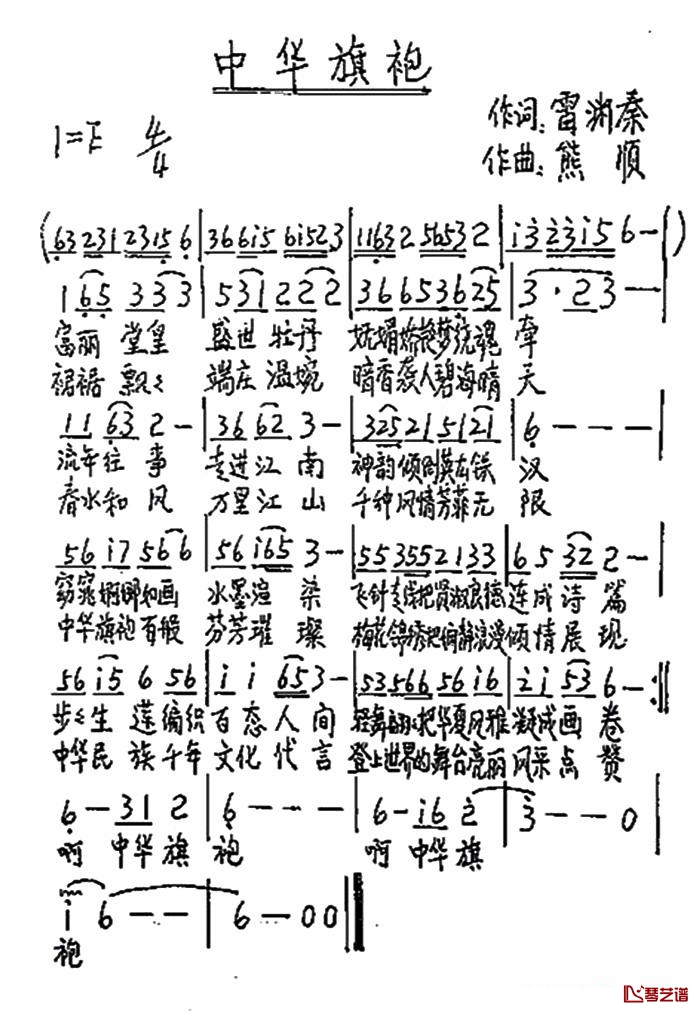 中华旗袍
作词：雷湘秦
1=F 4/4
作曲：熊 顺
(63 231 2315 6 | 36 6i5 6i52 3 | 1163 2 5653 2 | i3 23i5 6 - )
1 65 3 33 3 | 5 31 2 22 2 | 36 65 36 25 | 3 · 2 3 - |
富丽 堂皇 盛世 牡丹 妩媚娇艳梦绕魂 牵
裙裾 飘飘 端庄 温婉 暗香袭人碧海晴 天
11 63 2 - | 36 62 3 - | 325 21 51 21 | 6 - - - |
流年往 事 走进江 南 神韵倾倒 汉
春水和 风 万里江 山 千种风情芳菲无 限
56 i7 56 6 | 56 i65 3 - | 55 355 21 33 | 6 5 32 2 - |
窈窕婀娜如画 水墨渲 染 飞针走线把贤淑良德 连成诗 篇
中华旗袍百般 芬芳璀 璨 梅花锦绣把 静浪漫 倾情展 现
56 i5 6 56 | i i 65 3 - | 53 566 56 i6 | 2 i 53 6 - :||
步步生 莲编织 百态人 间 轻舞 把华夏风雅 凝成画 卷
中华民 族千年 文化代 言 登上世界的舞台亮丽 风采点 赞
6 - 31 2 | 6 - - - | 6 - i6 2 | 3 - - 0 |
啊 中华 旗 袍 啊 中华 旗
i 6 - - | 6 - 0 0 ||
袍
琴艺谱